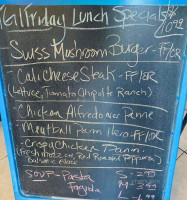 Friday Lunch Specials
10.99
- Swiss Mushroom Burger - FF/OR
- Cali Cheese Steak - FF/OR
(Lettuce, Tomato Chipotle Ranch)
- Chicken Alfredo over Penne
- Meatball Parm Hero - FF/OR
- Crispy Chicken Panini
(Fresh mozz, Red Roasted Peppers)
Balsamic
Soup - Pasta S - 2.95
Fagiola M - 3.99
L -